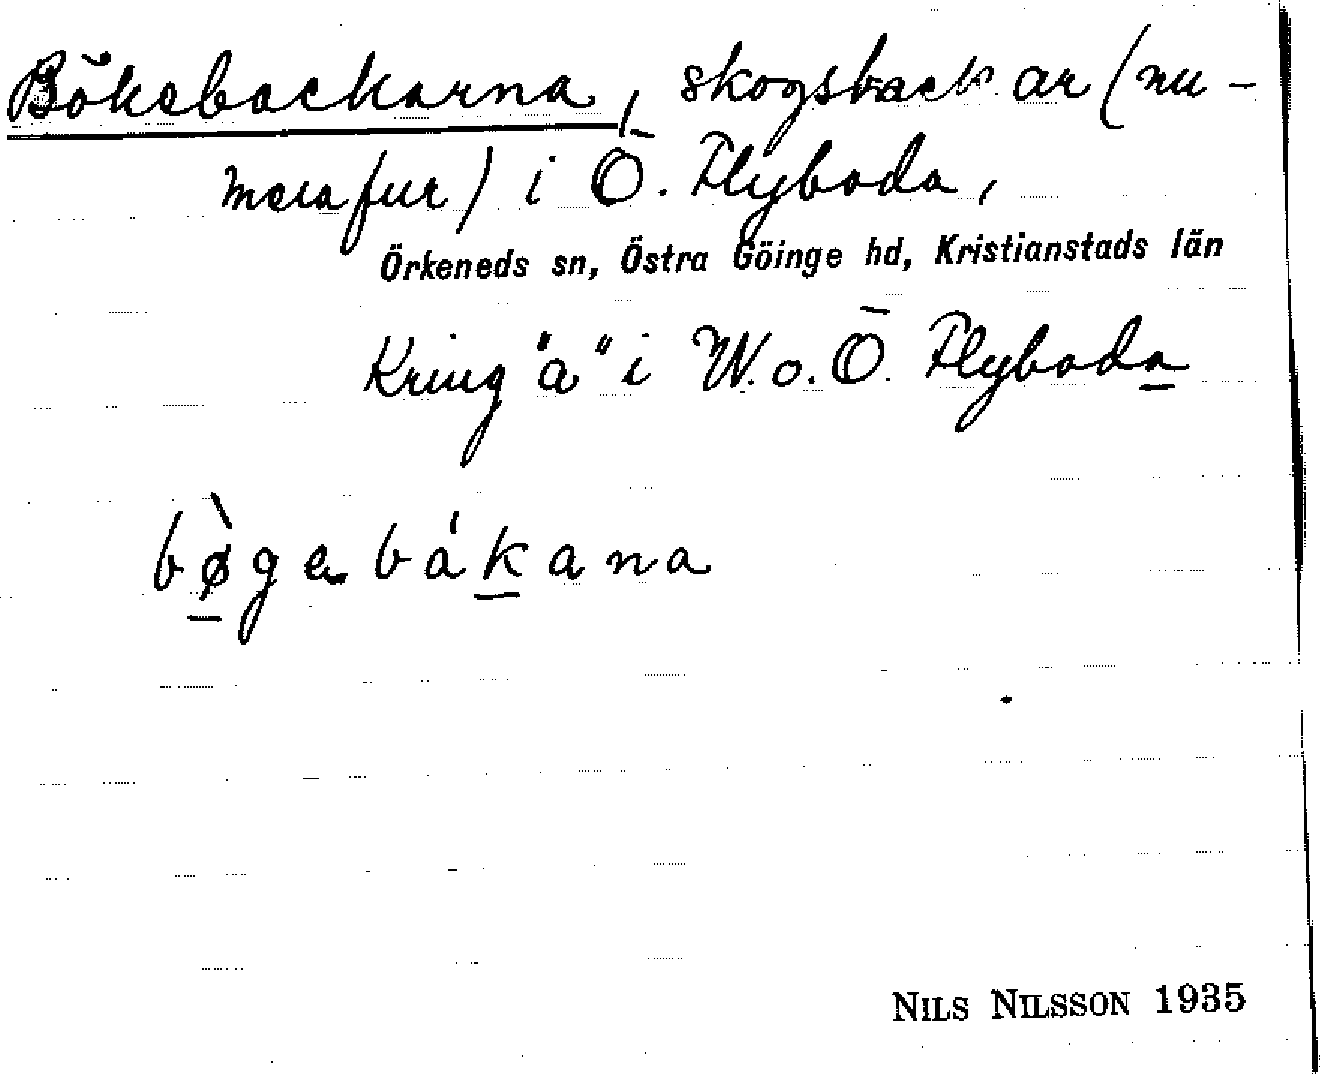 Bökebackarna, skogsbackar (nu-
mera fur) i Ö. Flyboda,
Örkeneds sn, Östra Göinge hd, Kristianstads län
Kring "a" i W. o. Ö Flyboda
bø̀gebákana
NILS NILSSON 1935